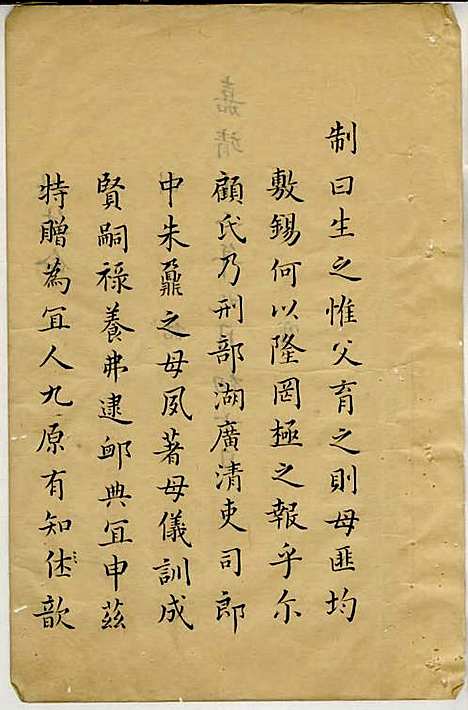 制曰生之惟父育之則母匪均
敷錫何以隆罔極之報乎尔
顧氏乃刑部湖廣清吏司郎
中朱鼐之母夙著母儀訓成
賢嗣祿養弗逮卹典冝申茲
特贈為冝人九原有知歆
嘉靖